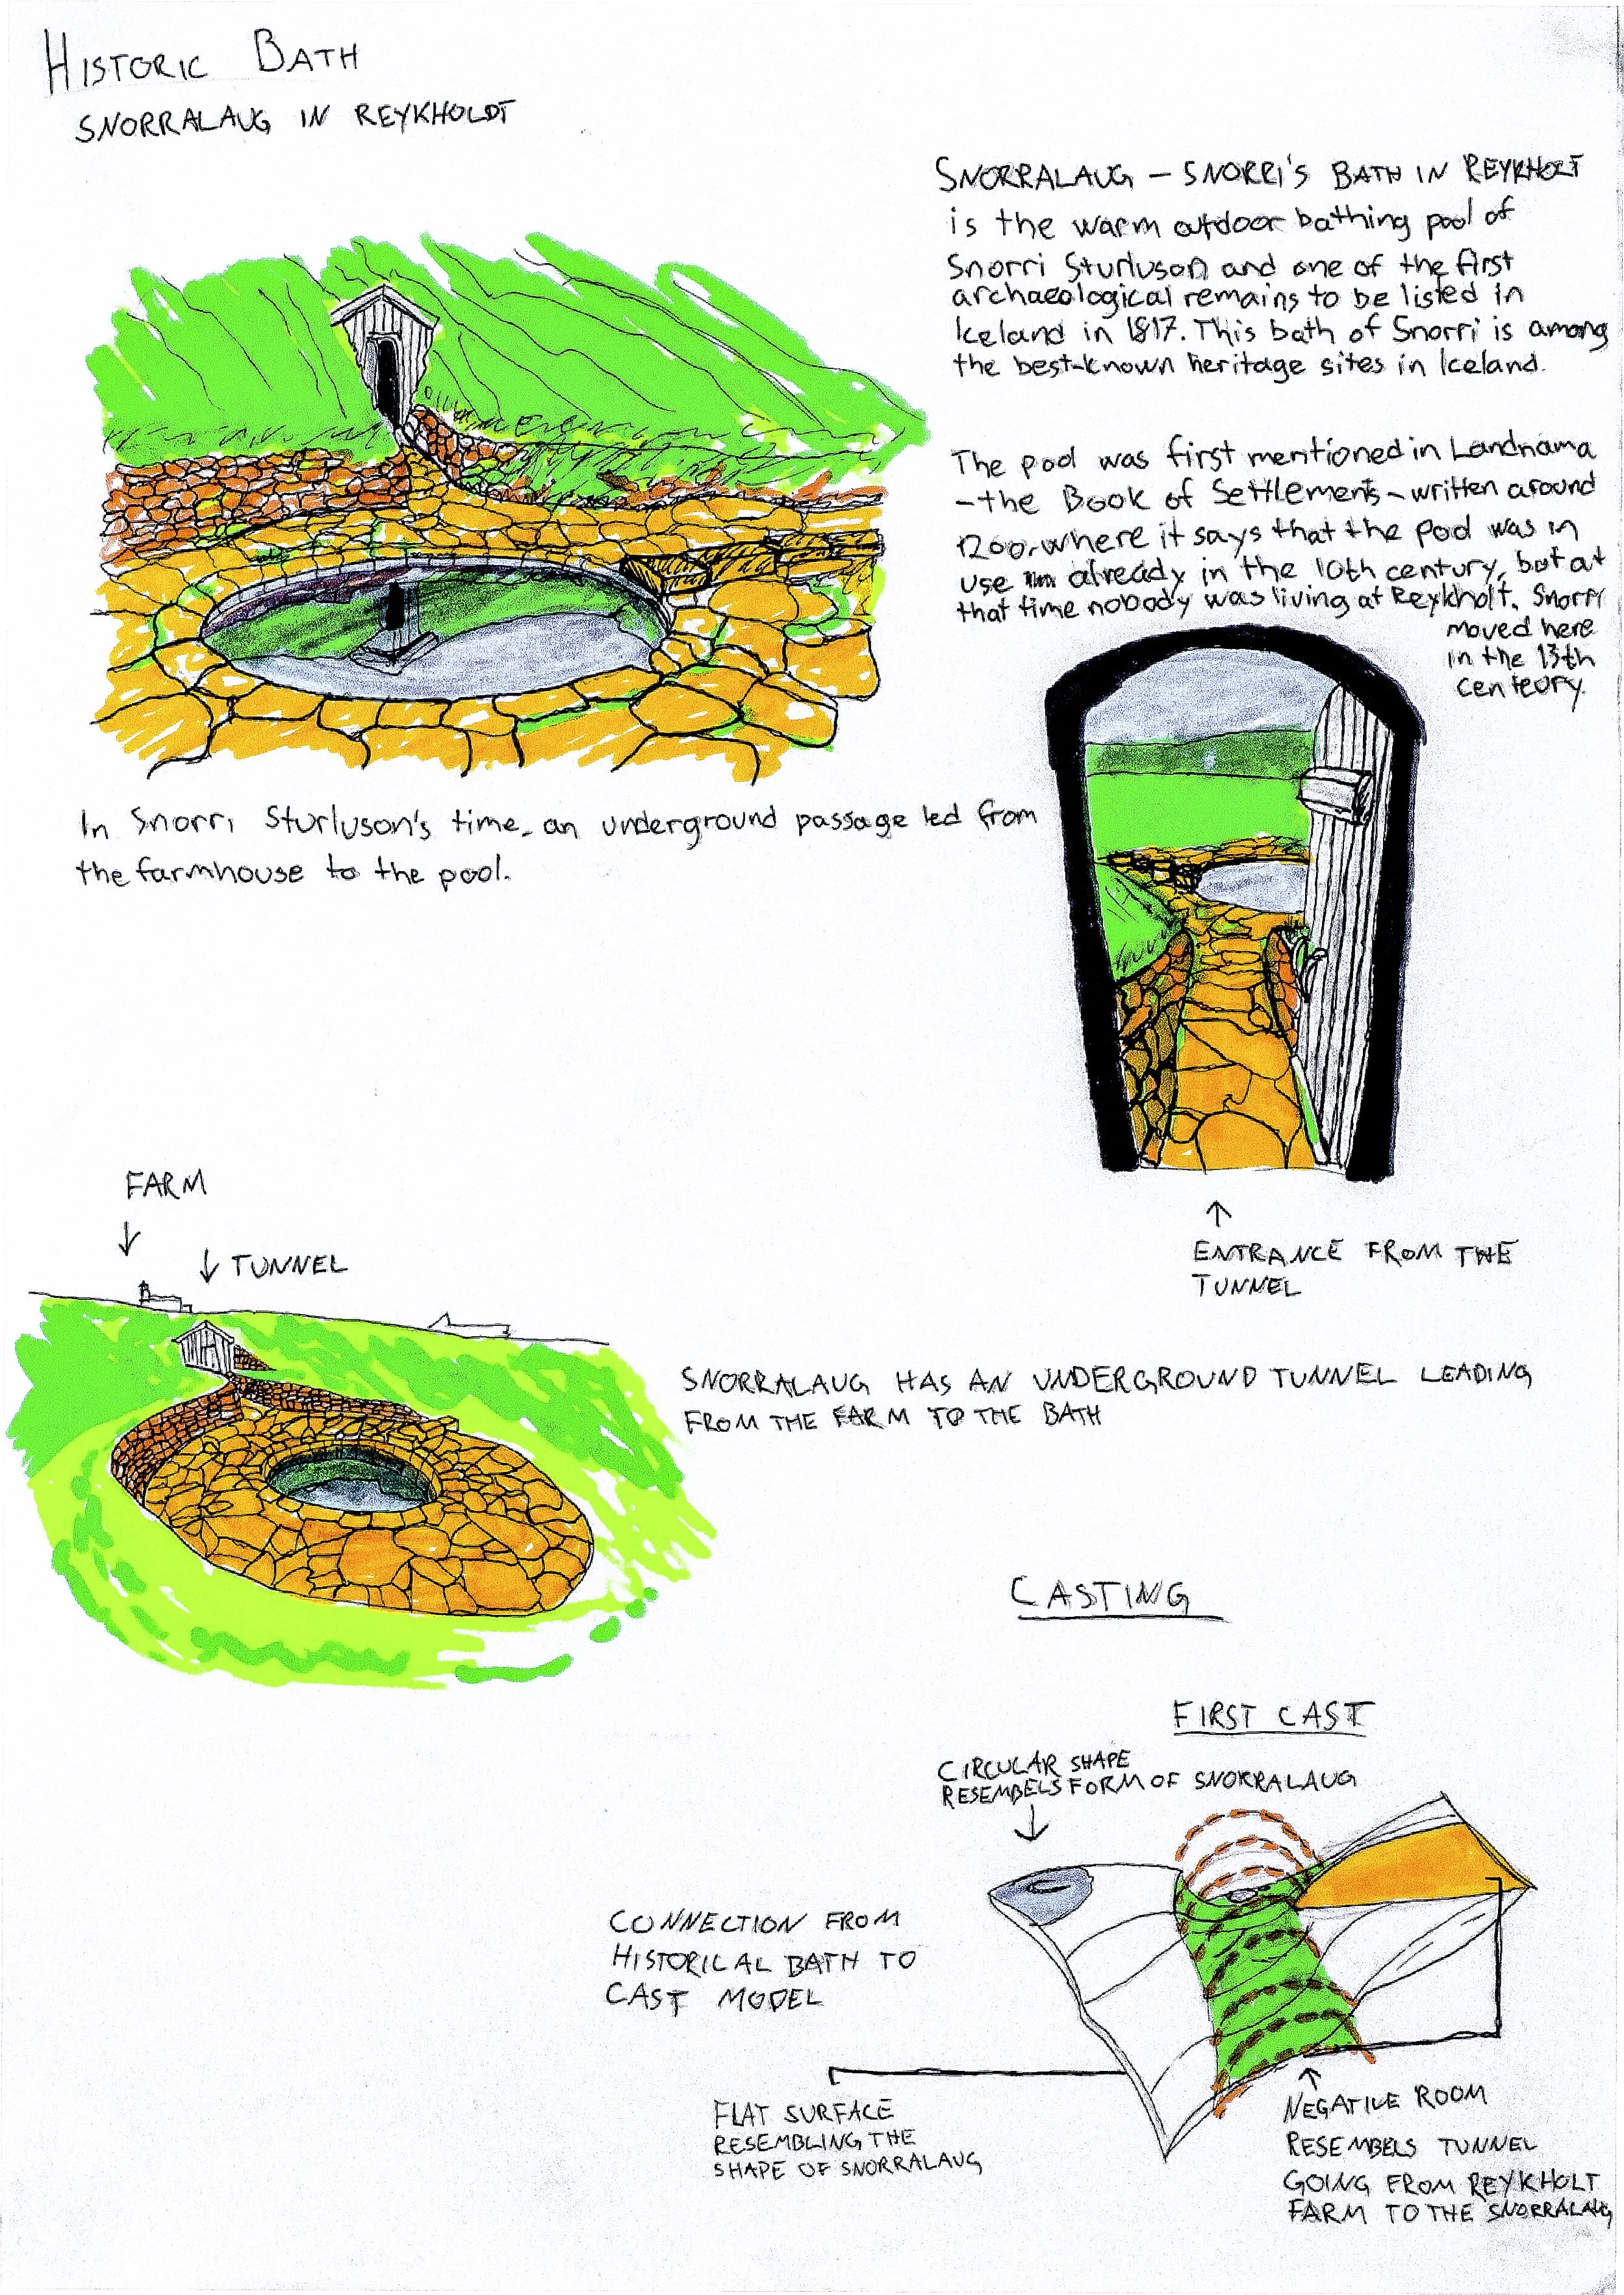 HISTORIC BATH
SNORRALAUG IN REYKHOLDT
SNORRALAUG – SNORRI'S BATH IN REYKHOLT
is the warm outdoor bathing pool of
Snorri Sturluson and one of the first
archaeological remains to be listed in
Iceland in 1817. This bath of Snorri is among
the best-known heritage sites in Iceland.
The pool was first mentioned in Landnama
-the Book of Settlements-written around
1200, where it says that the pool was in
use already in the 10th century, but at
that time nobody was living at Reykholt. Snorri
moved here
in the 13th
centeury.
In Snorri Sturluson's time, an underground passage led from
the farmhouse to the pool.
ENTRANCE FROM THE
TUNNEL
FARM
TUNNEL
SNORRALAUG HAS AN UNDERGROUND TUNNEL LEADING
FROM THE FARM TO THE BATH
CASTING
FIRST CAST
CIRCULAR SHAPE
RESEMBELS FORM OF SNORRALAUG
CONNECTION FROM
HISTORICAL BATH TO
CAST MODEL
FLAT SURFACE
RESEMBLING THE
SHAPE OF SNORRALAUG
NEGATIVE ROOM
RESEMBELS TUNNEL
GOING FROM REYKHOLT
FARM TO THE SNORRALAUG